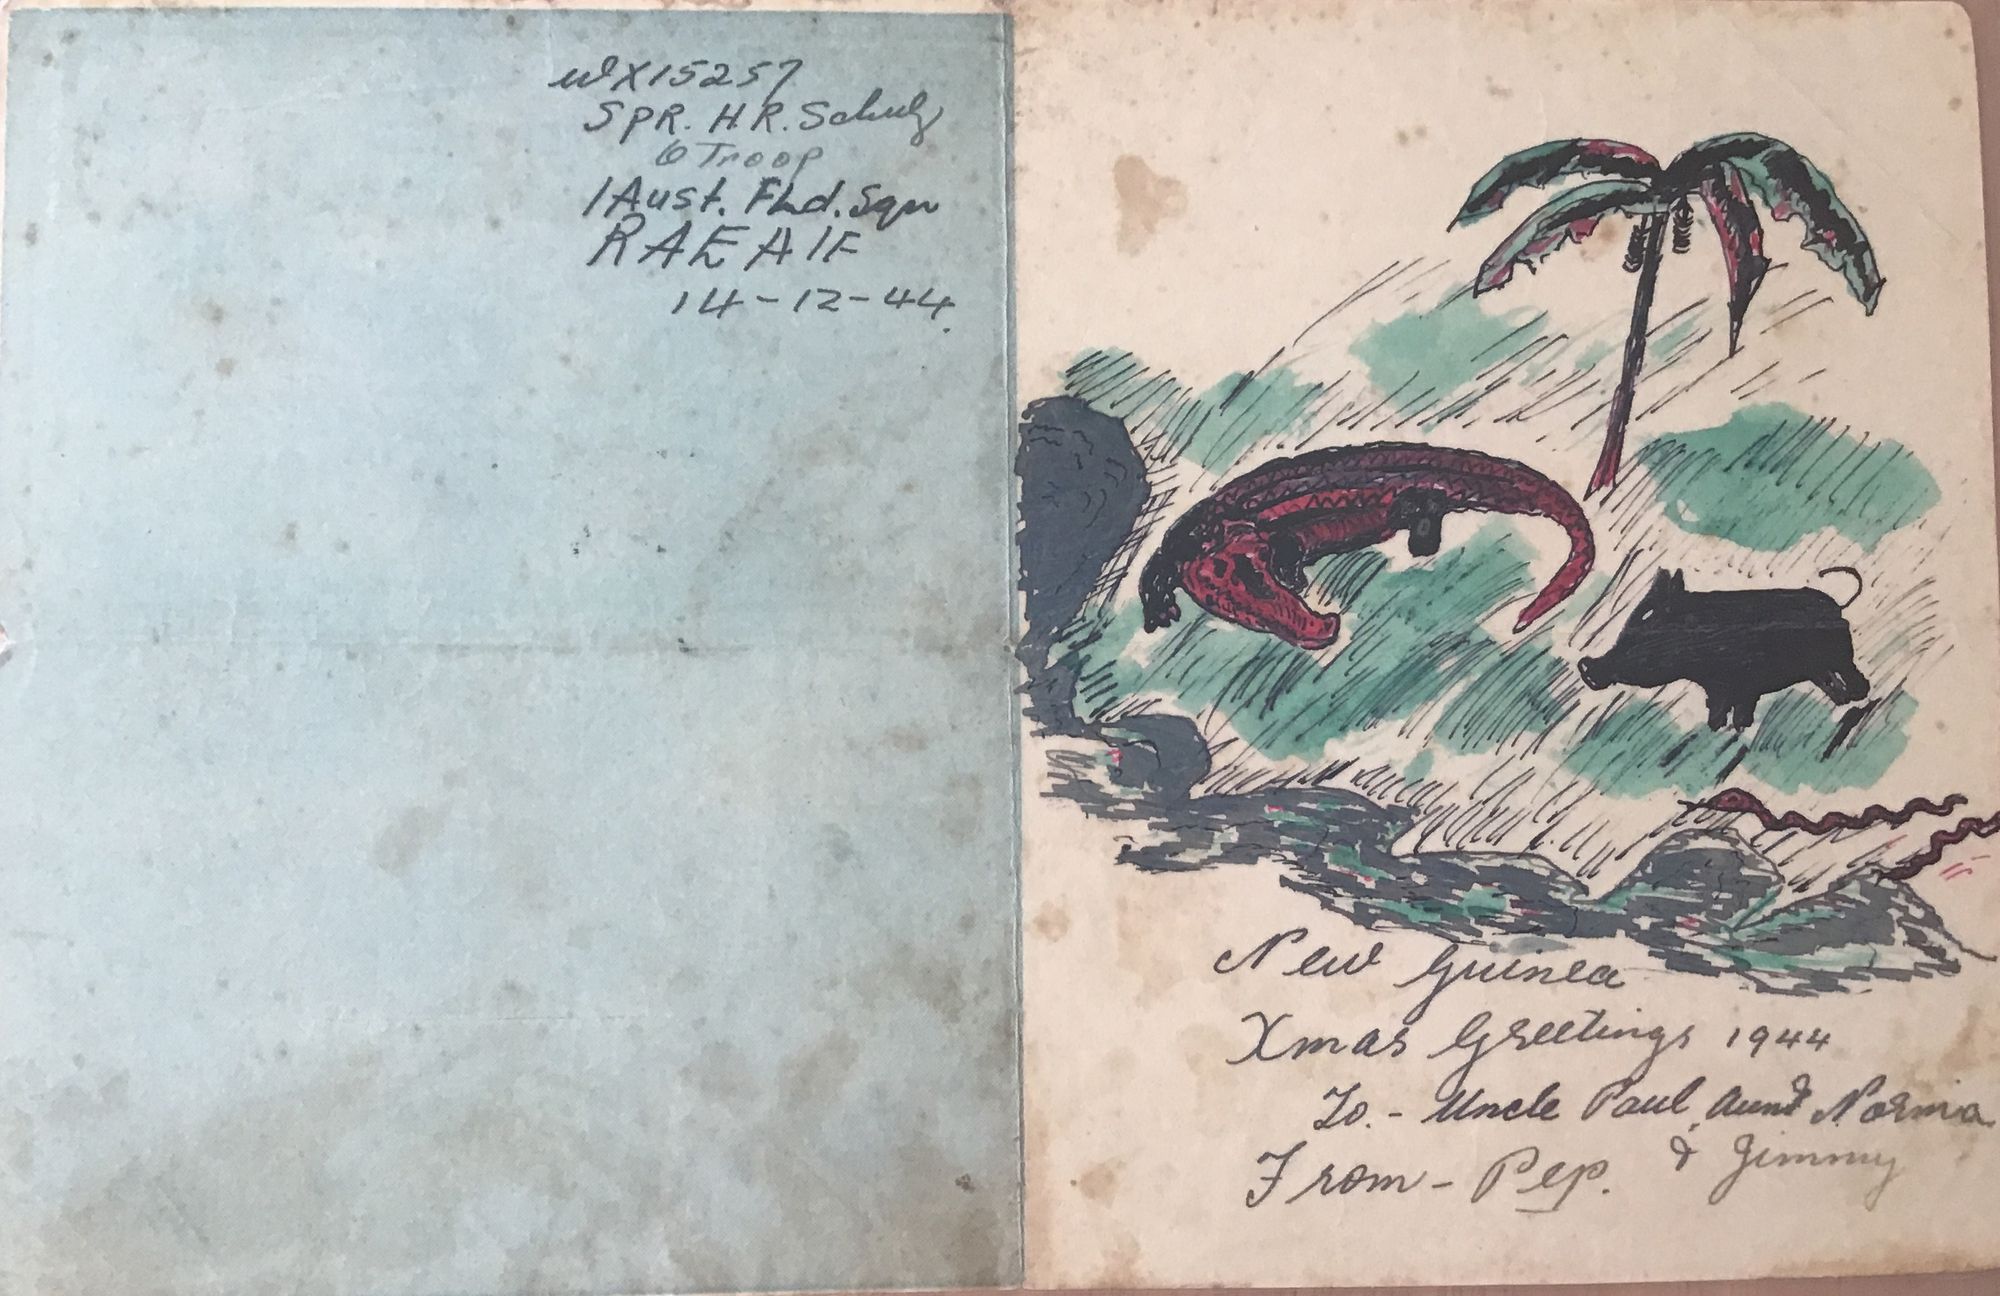 WX15257
SPR. H.R. Schulz
6 Troop
1 Aust. Fld. Sqn
RAE AIF
14-12-44.
New Guinea
Xmas Greetings 1944
To.- Uncle Paul, Aunt Norma
& Jimmy
From - Pep.